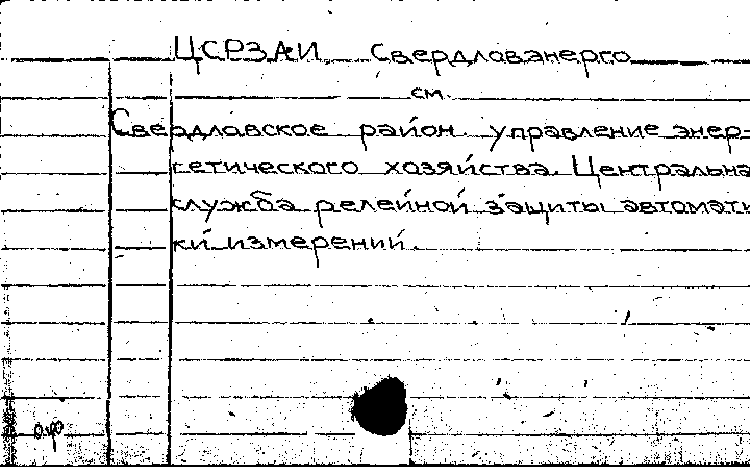 ЦСРЗАИ Свердловэнерго
см.
Свердловское район. управление энер-
гетического хозяйства. Центральна
служба релейной защиты автомати
ки измерений.
орф